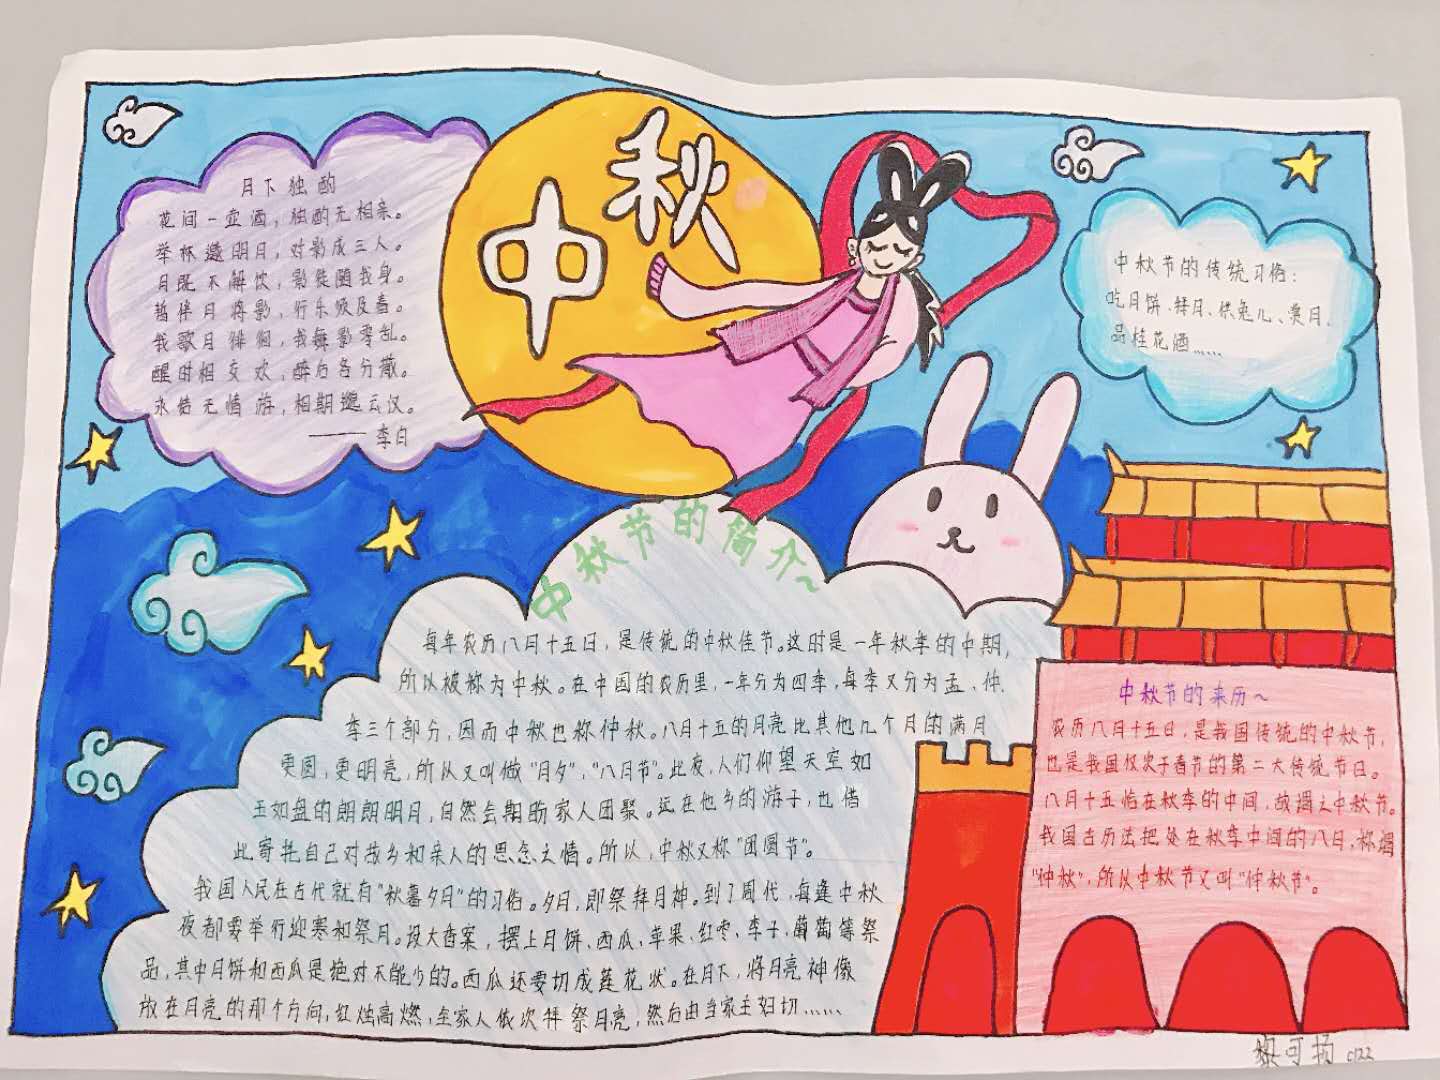 中秋
月下独酌
花间一壶酒，独酌无相亲。
举杯邀明月，对影成三人。
月既不解饮，影徒随我身。
暂伴月将影，行乐须及春。
我歌月徘徊，我舞影零乱。
醒时相交欢，醉后各分散。
永结无情游，相期邈云汉。
——李白
中秋节的传统习俗：
吃月饼、拜月、供兔儿、赏月、
品桂花酒……
中秋节的简介~
每年农历八月十五日，是传统的中秋佳节。这时是一年秋季的中期，
所以被称为中秋。在中国的农历里，一年分为四季，每季又分为孟、仲、
季三个部分，因而中秋也称仲秋。八月十五的月亮比其他几个月的满月
更圆，更明亮，所以又叫做“月夕”，“八月节”。此夜，人们仰望天空如
玉如盘的朗朗明月，自然会期盼家人团聚。远在他乡的游子，也借
此寄托自己对故乡和亲人的思念之情。所以，中秋又称“团圆节”。
我国人民在古代就有“秋暮夕月”的习俗。夕月，即祭拜月神。到了周代，每逢中秋
夜都要举行迎寒和祭月。设大香案，摆上月饼、西瓜、苹果、红枣、李子、葡萄等祭
品，其中月饼和西瓜是绝对不能少的。西瓜还要切成莲花状。在月下，将月亮神像
放在月亮的那个方向，红烛高燃，全家人依次拜祭月亮，然后由当家主妇切……
中秋节的来历~
农历八月十五日，是我国传统的中秋节，
也是我国仅次于春节的第二大传统节日。
八月十五恰在秋季的中间，故谓之中秋节。
我国古历法把处在秋季中间的八月，称谓
“仲秋”，所以中秋节又叫“仲秋节”。
黎可扬 c122